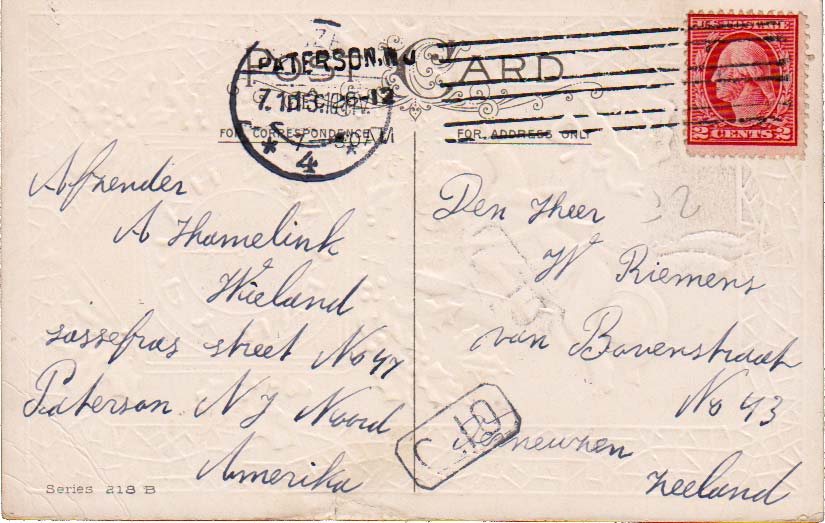 POST CARD
PATERSON, N.J.
FOR CORRESPONDENCE
FOR ADDRESS ONLY
2 CENTS 2
4
Afzender
A Thamelink
Wieland
sassefras street No 47
Paterson N J Noord
Amerika
Den Heer
W Riemens
van Bovenstraat
No 43
Terneuzen
Zeeland
C 19
Series 218 B